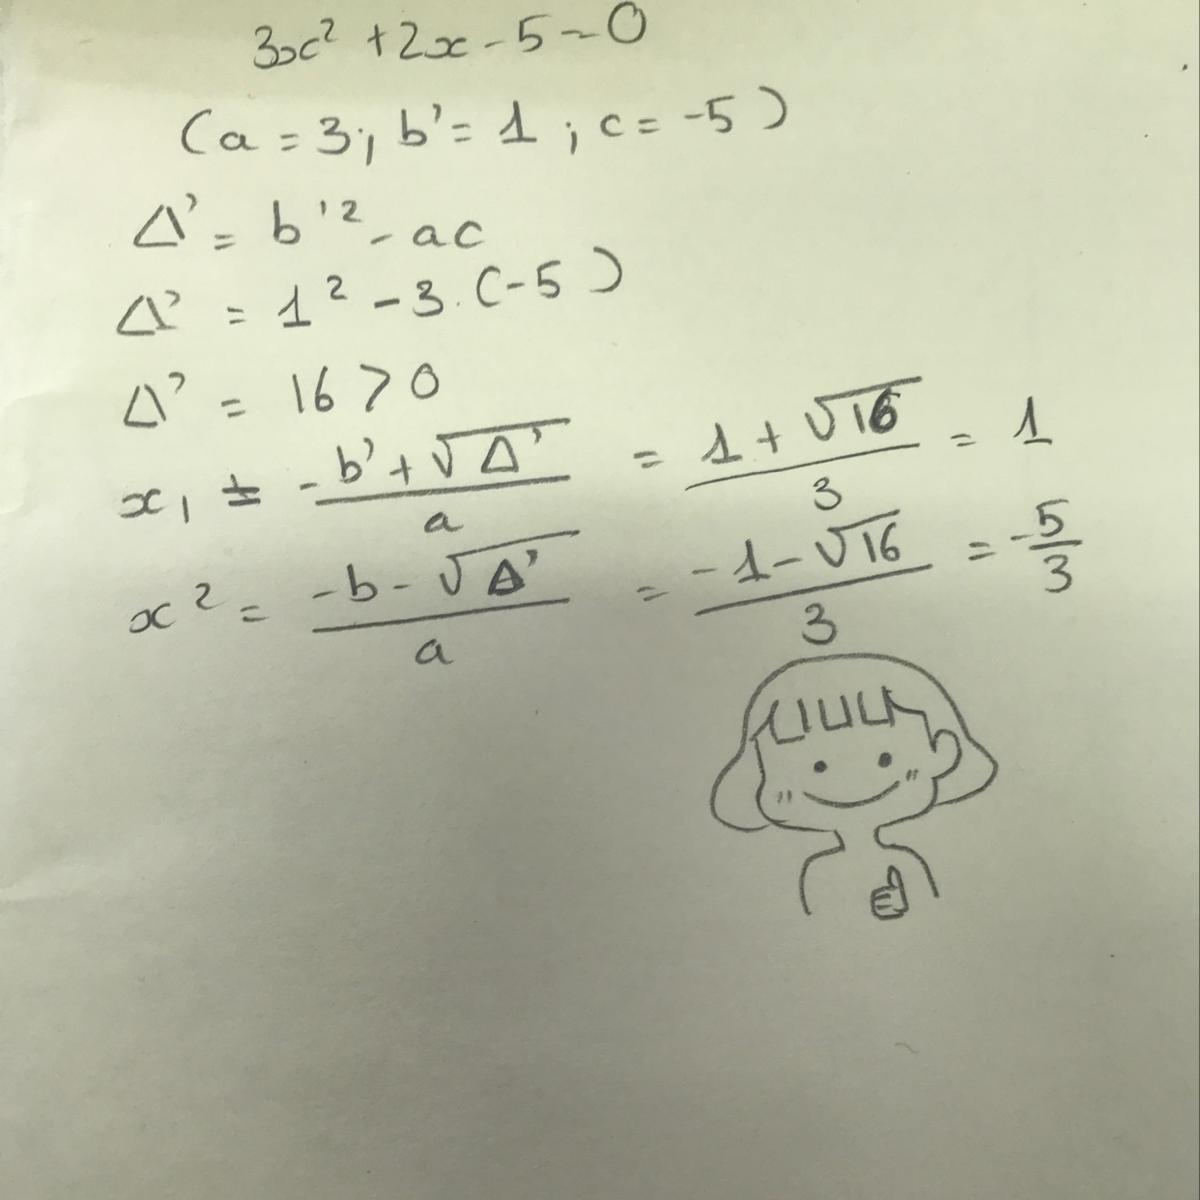 3x² + 2x - 5 = 0
(a = 3; b' = 1; c = -5)
Δ' = b'² - ac
Δ' = 1² - 3.(-5)
Δ' = 16 > 0
x₁ = -b' + √Δ' / a = 1 + √16 / 3 = 1
x² = -b - √Δ' / a = -1 - √16 / 3 = -5/3